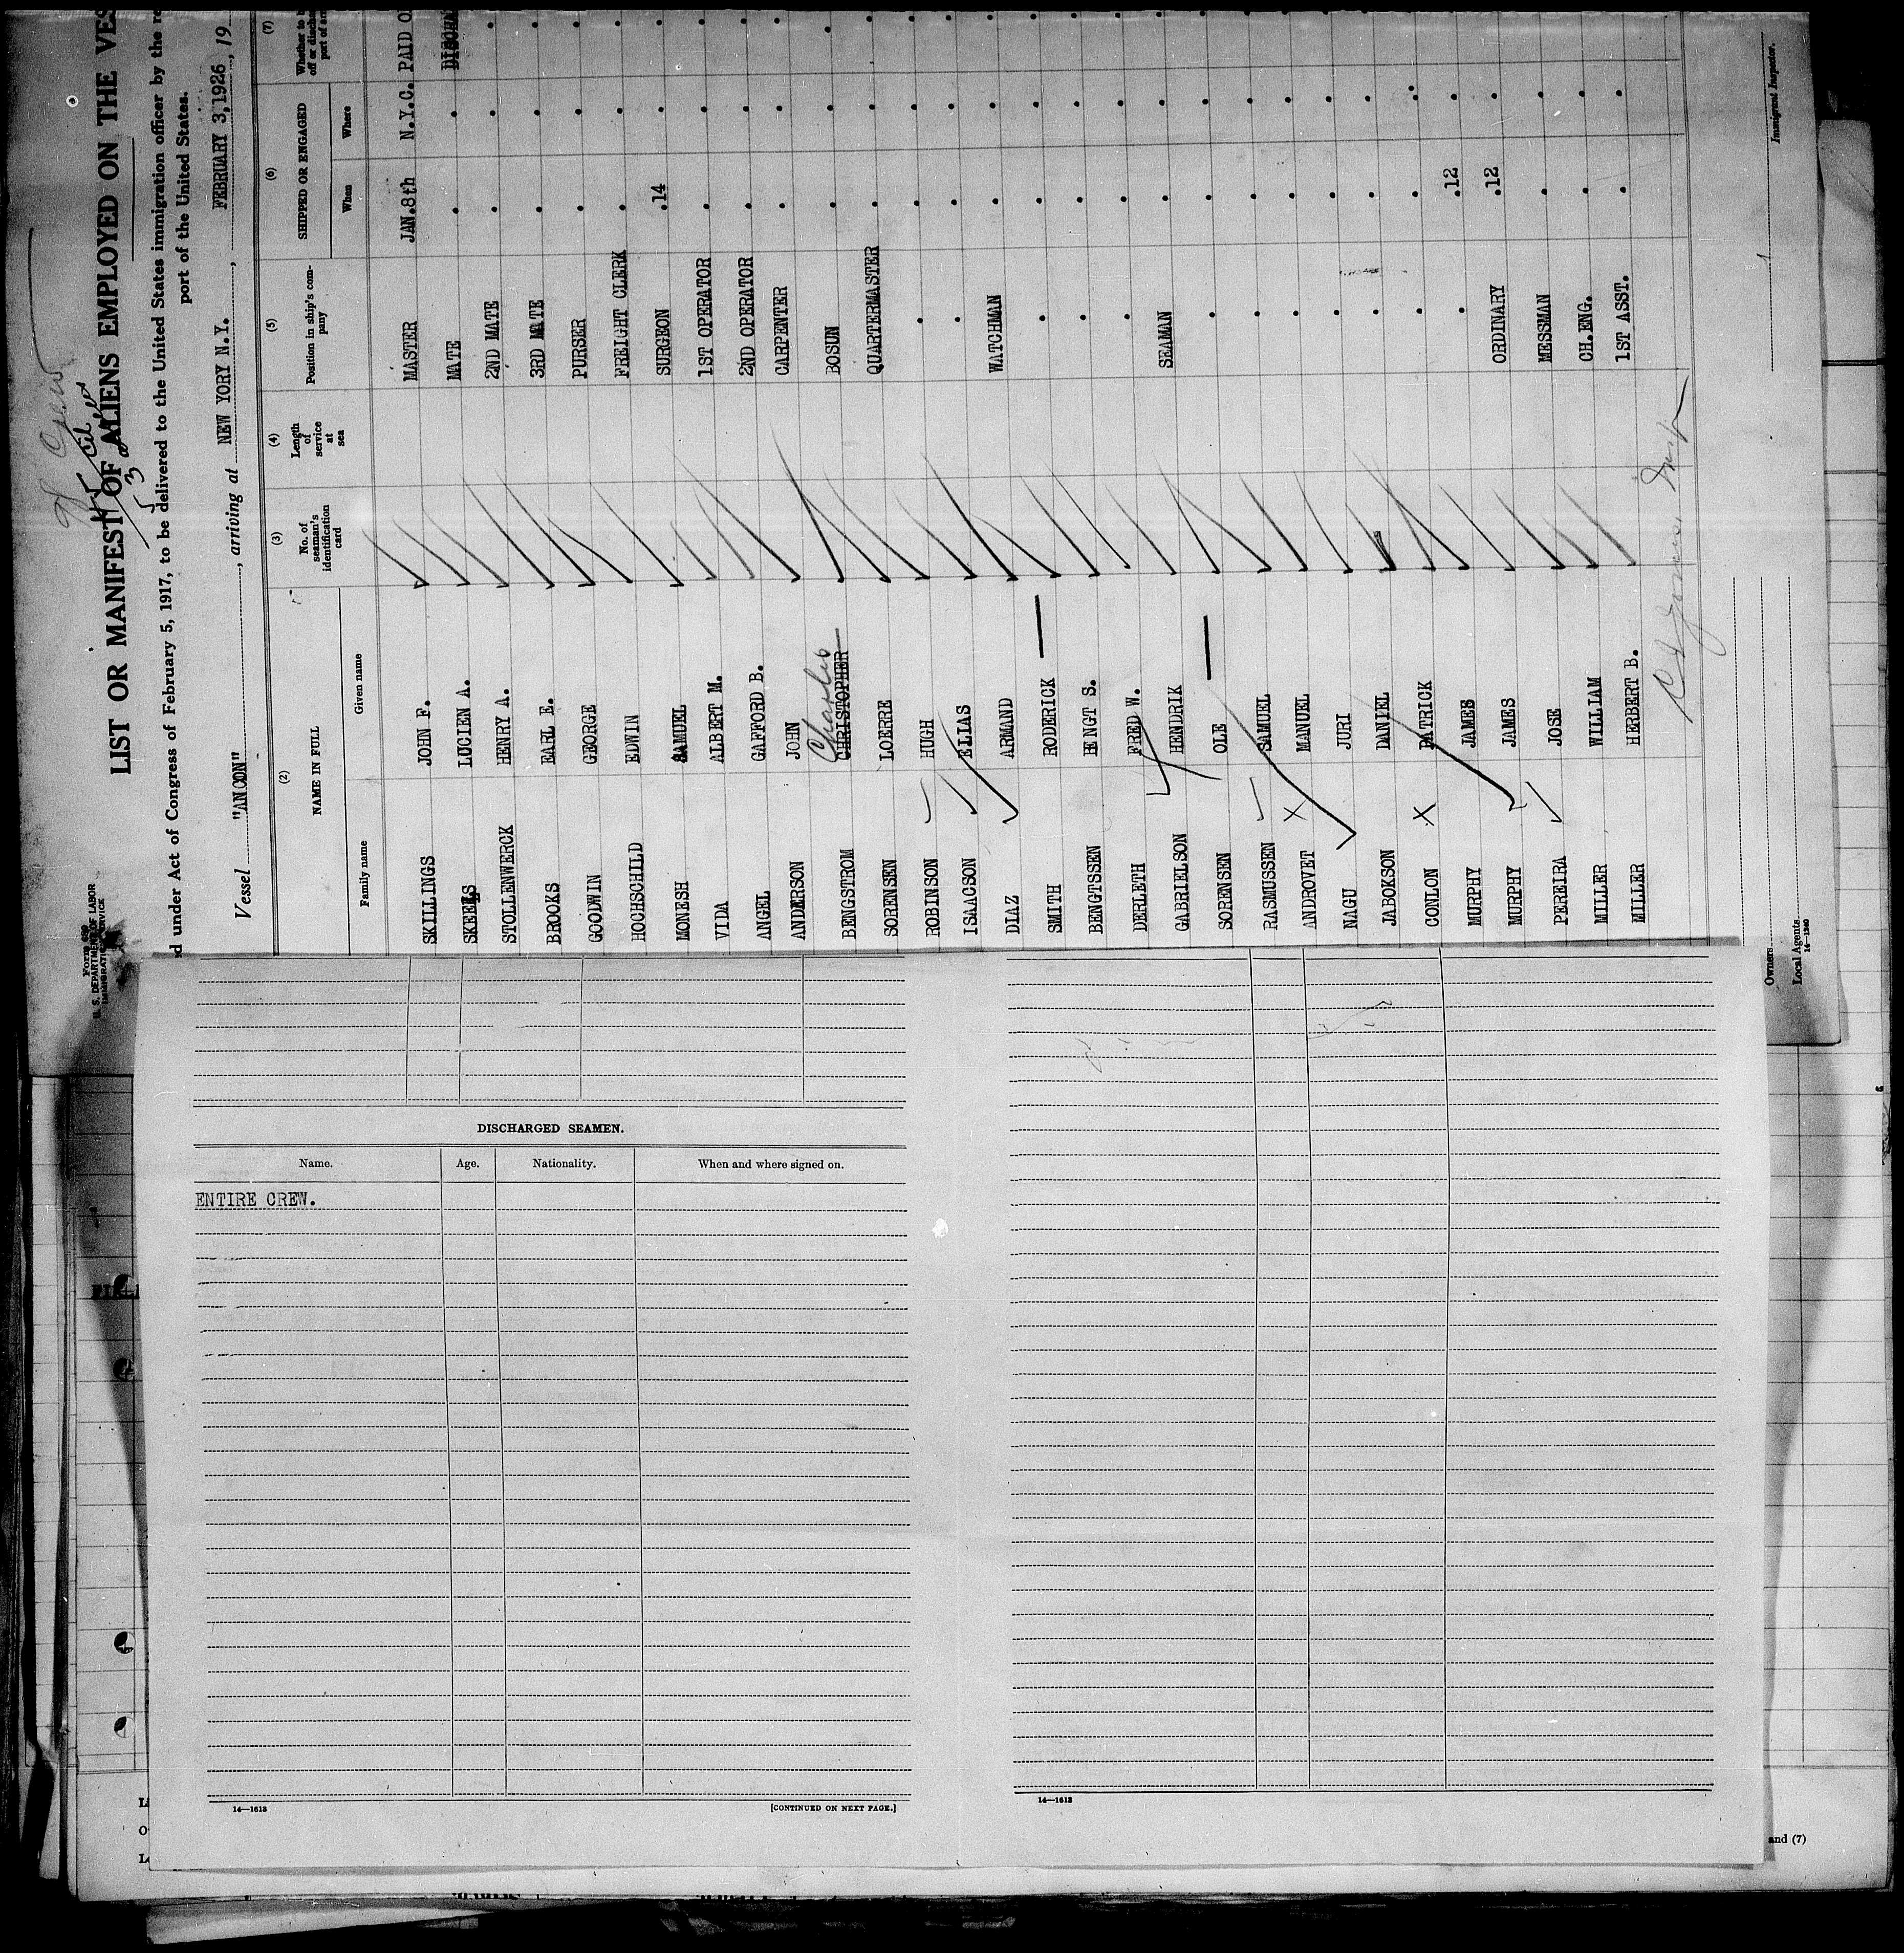 Form 689
U. S. DEPARTMENT OF LABOR
IMMIGRATION SERVICE
Crew
LIST OR MANIFEST OF ALIENS EMPLOYED ON THE VES
d under Act of Congress of February 5, 1917, to be delivered to the United States immigration officer by the re
port of the United States.
Vessel "ANCON", arriving at NEW YORY N.Y., FEBRUARY 3,1926, 19
(2) (3) (4) (5) (6) (7)
NAME IN FULL No. of seaman's identification card Length of service at sea Position in ship's company SHIPPED OR ENGAGED Whether to b off or discha port of arr
Family name Given name When Where
SKILLINGS JOHN F. MASTER JAN.8th N.Y.C. PAID O
SKEELS LUCIEN A. MATE . . DISCHA
STOLLENWERCK HENRY A. 2ND MATE . . .
BROOKS EARL E. 3RD MATE . . .
GOODWIN GEORGE PURSER . . .
HOCHSCHILD EDWIN FREIGHT CLERK . . .
MONESH SAMUEL SURGEON .14 . .
VIDA ALBERT M. 1ST OPERATOR . . .
ANGEL GAFFORD B. 2ND OPERATOR . . .
ANDERSON JOHN CARPENTER . . .
BENGSTROM CHRISTOPHER Charles BOSUN . . .
SORENSEN LOERRE QUARTERMASTER . . .
ROBINSON HUGH . . . .
ISAACSON ELIAS . . . .
DIAZ ARMAND WATCHMAN . . .
SMITH RODERICK . . . .
BENGTSSEN BENGT S. . . . .
DERLETH FRED W. . . . .
GABRIELSON HENDRIK SEAMAN . . .
SORENSEN OLE . . . .
RASMUSSEN SAMUEL . . . .
ANDROVET MANUEL . . . .
NAGU JURI . . . .
JABOKSON DANIEL . . . .
CONLON PATRICK . . . .
MURPHY JAMES . .12 . .
MURPHY JAMES ORDINARY .12 . .
PERREIRA JOSE MESSMAN . . .
MILLER WILLIAM CH.ENG. . . .
MILLER HERBERT B. 1ST ASST. . . .
Immigrant Inspector.
Owners
Local Agents
14—1240
DISCHARGED SEAMEN.
Name. Age. Nationality. When and where signed on.
ENTIRE CREW.
14—1613
[CONTINUED ON NEXT PAGE.]
14—1613
and (7)